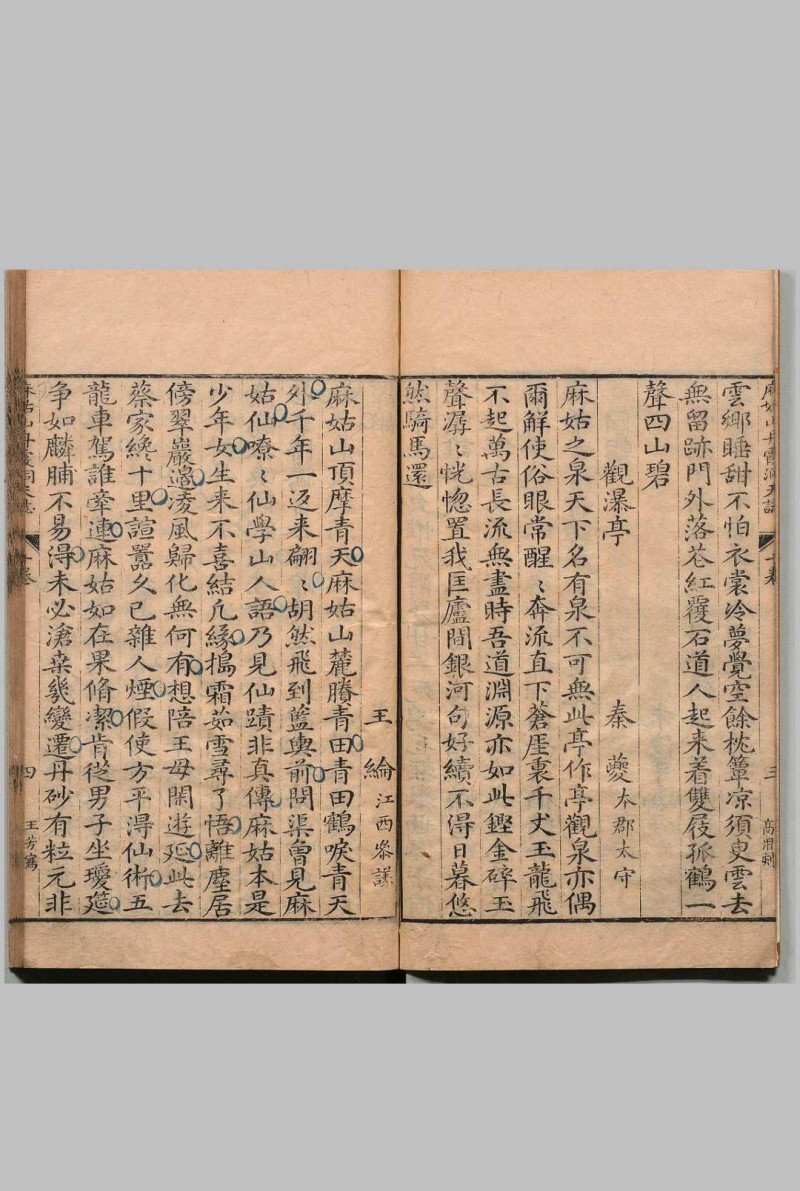 麻姑山丹霞洞天誌
十卷
三
高潤刻
雲鄉睡甜不怕衣裳冷夢覺空餘枕簟凉須臾雲去
無留跡門外落花紅覆石道人起来着雙屐孤鶴一
聲四山碧
觀瀑亭
秦夔本郡太守
麻姑之泉天下名有泉不可無此亭作亭觀泉亦偶
爾解使俗眼常醒〻奔流直下蒼厓裏千丈玉龍飛
不起萬古長流無盡時吾道淵源亦如此鏗金碎玉
聲潺〻恍惚置我匡廬間銀河句好續不得日暮悠
然騎馬還
王綸江西叅議
麻姑山頂摩青天麻姑山麓騰青田青田鶴唳青天
外千年一返来翩〻胡然飛到藍輿前問渠曾見麻
姑仙嘹〻仙學山人語乃見仙蹟非真傳麻姑本是
少年女生来不喜結凡緣搗霜茹雪尋了悟離塵居
傍翠巖邉凌風歸化無何有想陪王母閑遊延此去
蔡家纔十里諠囂久已雜人煙假使方平得仙術五
龍車駕誰牽連麻姑如在果脩潔肯從男子坐瓊筵
争如麟脯不易得未必滄桒幾變遷丹砂有粒元非
麻姑山丹霞洞天誌
十卷
四
王芳寫